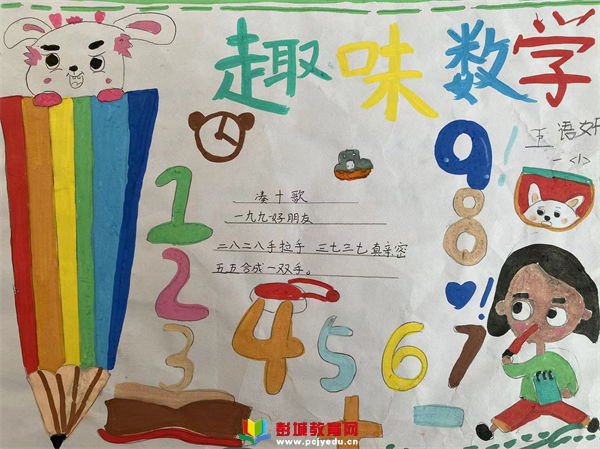 趣味数学
9!
一<1>
1
8
凑十歌
一九九好朋友
二八二八手拉手 三七三七真亲密
五五合成一双手。
2
!
3 4 5 6 7
+ -
彭城教育网
www.pcjyedu.cn